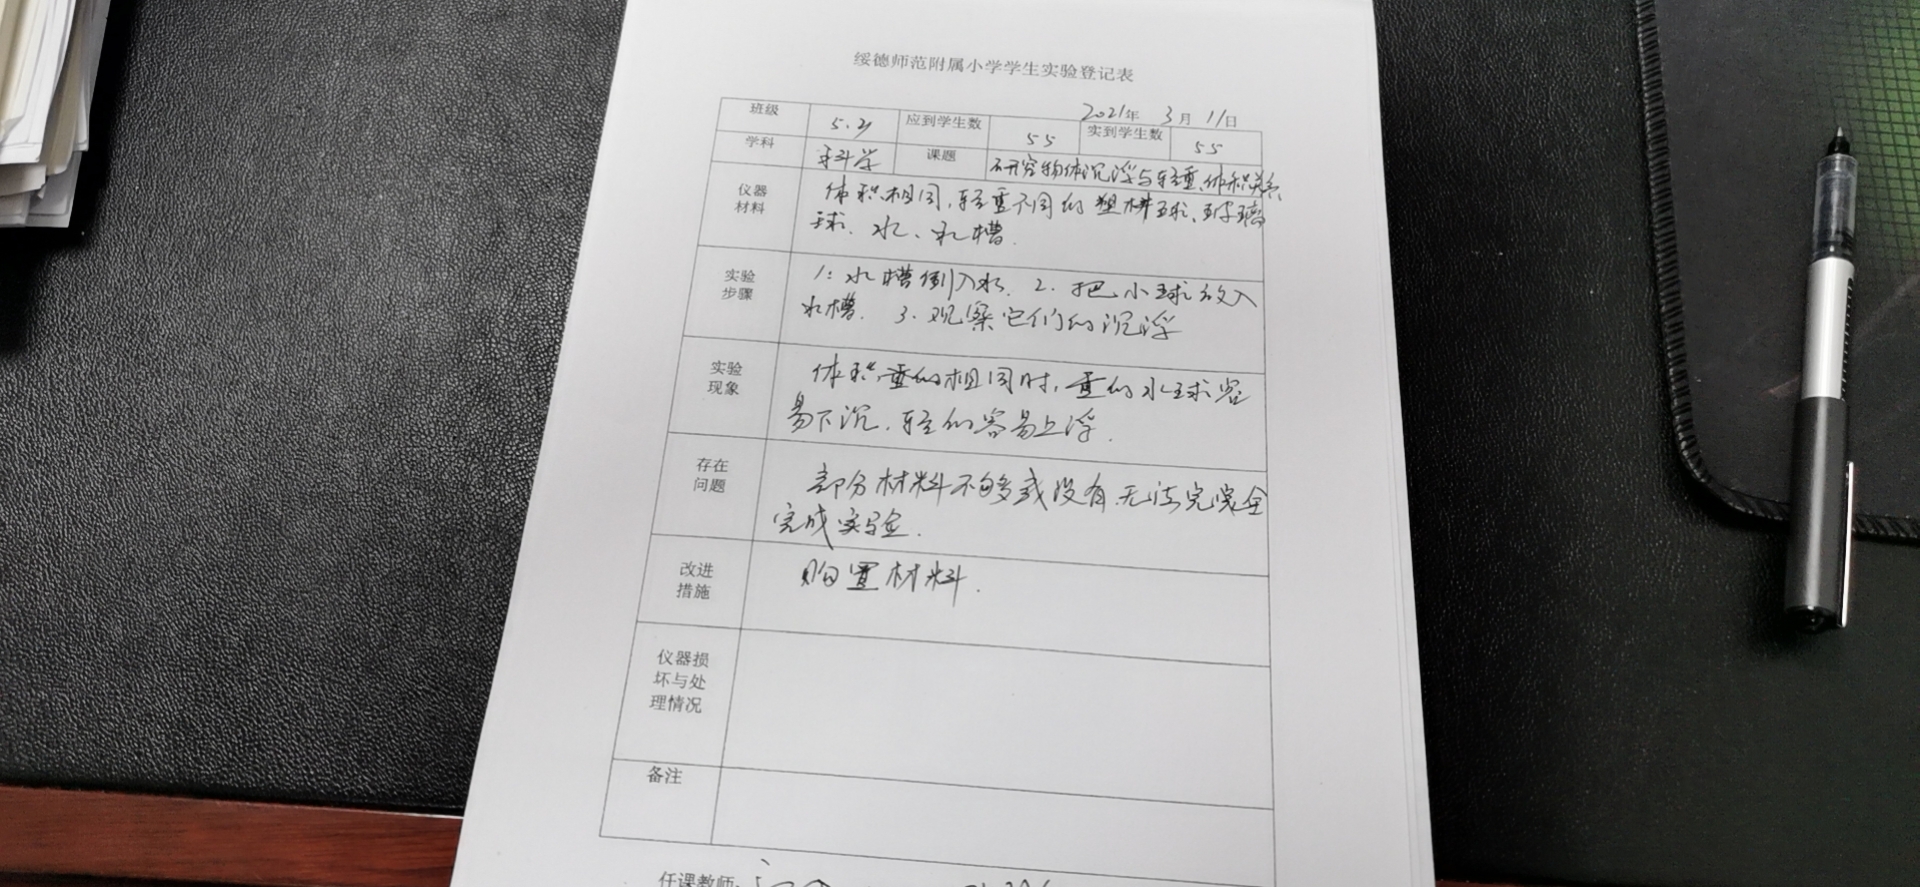 绥德师范附属小学学生实验登记表
2021年 3月 11日
班级 5.2 应到学生数 55 实到学生数 55
学科 科学 课题 研究物体沉浮与轻重、体积关系
仪器材料 体积相同,轻重不同的塑料球、玻璃
球、水、水槽.
实验步骤 1: 水槽倒入水. 2. 把小球放入
水槽. 3. 观察它们的沉浮
实验现象 体积、重的相同时,重的水球容
易下沉,轻的容易上浮.
存在问题 部分材料不够或没有,无法完完全
完成实验.
改进措施 购置材料.
仪器损坏与处理情况
备注
任课教师: